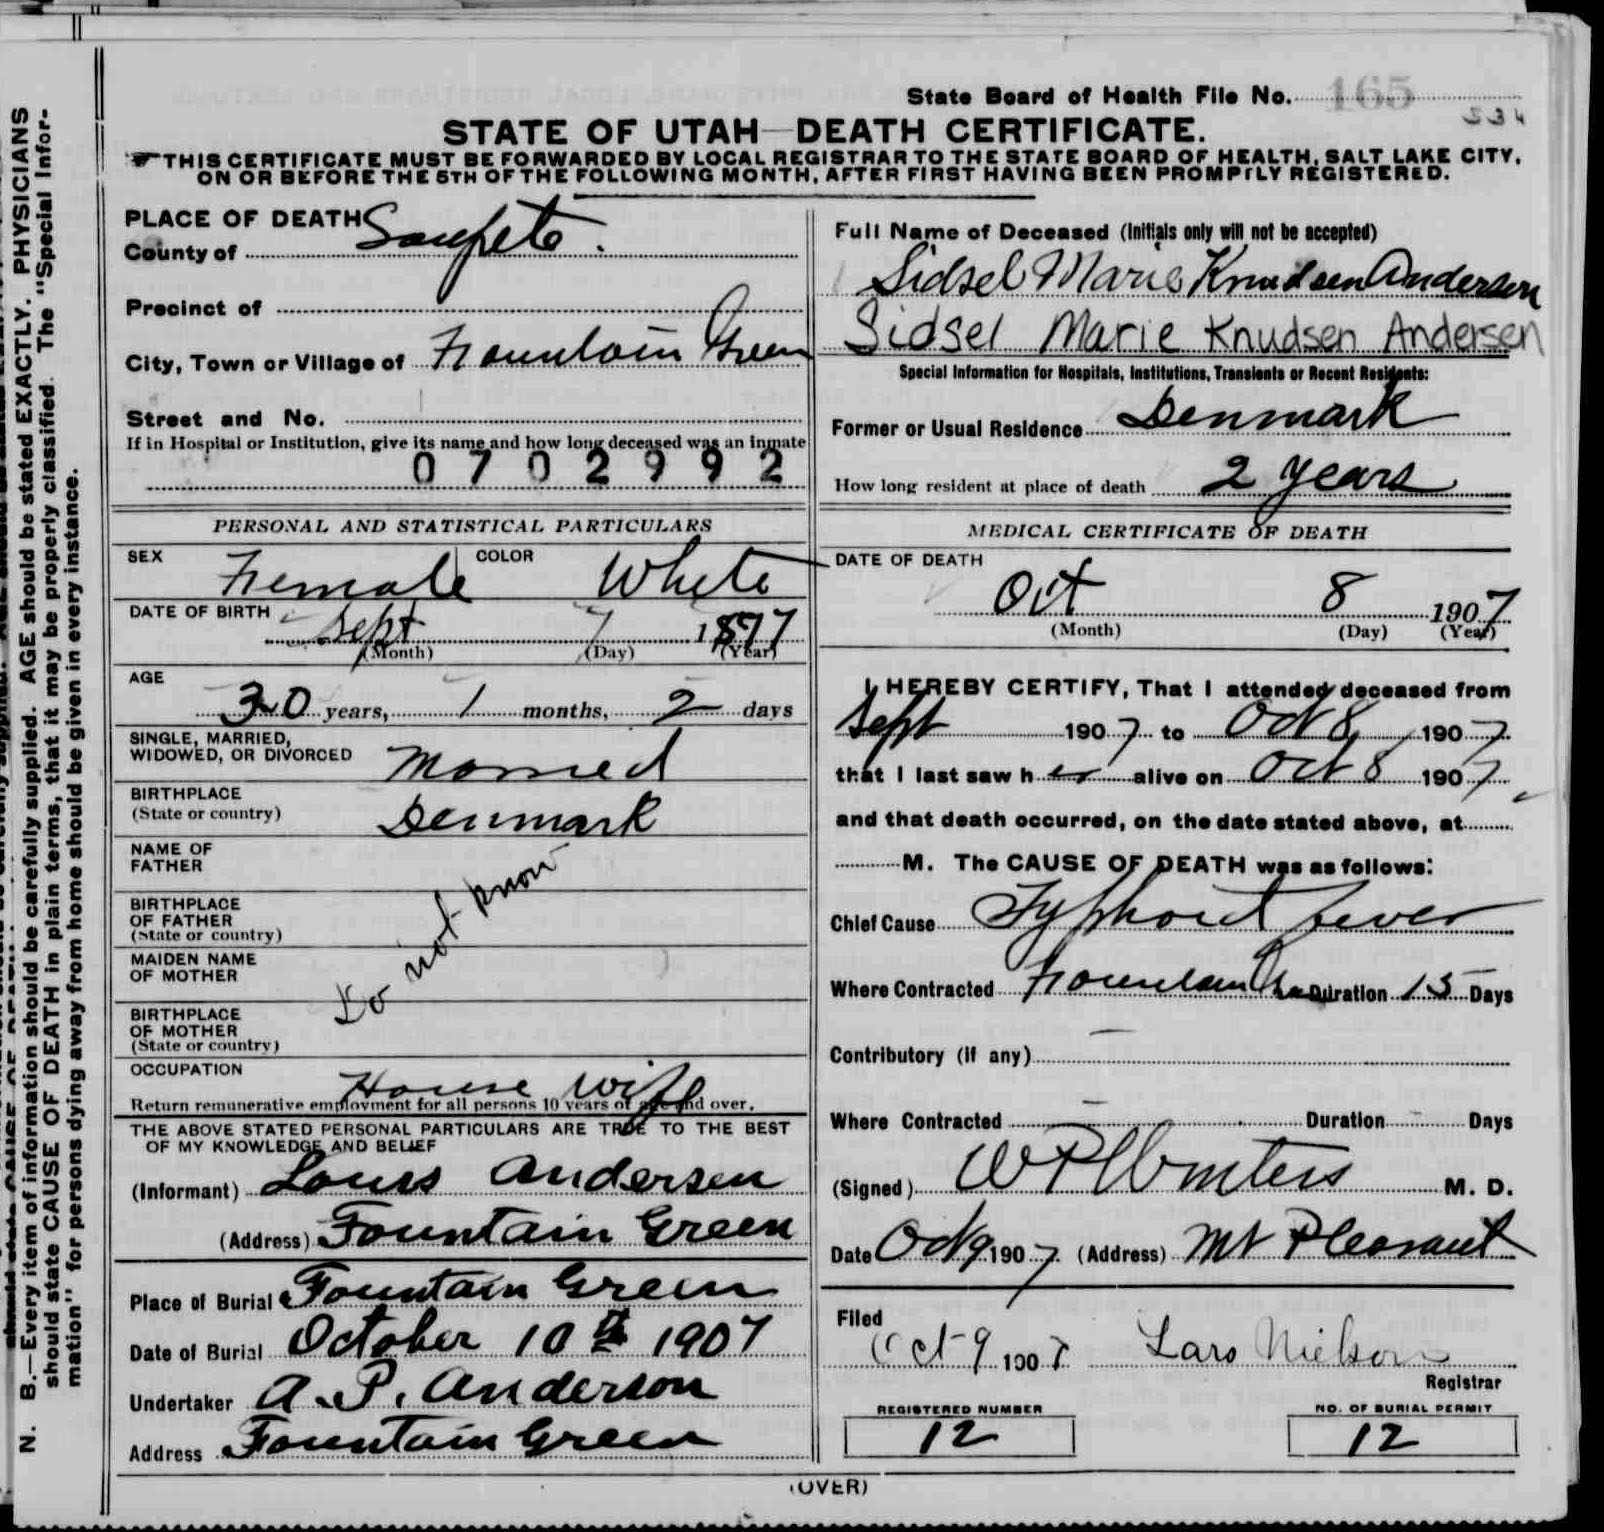 State Board of Health File No. 165
534
STATE OF UTAH—DEATH CERTIFICATE.
THIS CERTIFICATE MUST BE FORWARDED BY LOCAL REGISTRAR TO THE STATE BOARD OF HEALTH, SALT LAKE CITY,
ON OR BEFORE THE 5TH OF THE FOLLOWING MONTH, AFTER FIRST HAVING BEEN PROMPTLY REGISTERED.
N. B.—Every item of information should be carefully supplied. AGE should be stated EXACTLY. PHYSICIANS
should state CAUSE OF DEATH in plain terms, that it may be properly classified. The "Special Infor-
mation" for persons dying away from home should be given in every instance.
PLACE OF DEATH
County of Sanpete.
Precinct of
City, Town or Village of Fountain Green
Street and No.
If in Hospital or Institution, give its name and how long deceased was an inmate
0702992
PERSONAL AND STATISTICAL PARTICULARS
SEX Female COLOR White
DATE OF BIRTH Sept 7 1877
(Month) (Day) (Year)
AGE
30 years, 1 months, 2 days
SINGLE, MARRIED,
WIDOWED, OR DIVORCED Married
BIRTHPLACE
(State or country) Denmark
NAME OF
FATHER
BIRTHPLACE
OF FATHER
(State or country)
Do not know
MAIDEN NAME
OF MOTHER
BIRTHPLACE
OF MOTHER
(State or country)
OCCUPATION House Wife
Return remunerative employment for all persons 10 years of age and over.
THE ABOVE STATED PERSONAL PARTICULARS ARE TRUE TO THE BEST
OF MY KNOWLEDGE AND BELIEF
(Informant) Louis Andersen
(Address) Fountain Green
Place of Burial Fountain Green
Date of Burial October 10th 1907
Undertaker A. P. Anderson
Address Fountain Green
Full Name of Deceased (Initials only will not be accepted)
Sidsel Marie Knudsen Andersen
Sidsel Marie Knudsen Andersen
Special Information for Hospitals, Institutions, Transients or Recent Residents:
Former or Usual Residence Denmark
How long resident at place of death 2 years
MEDICAL CERTIFICATE OF DEATH
DATE OF DEATH
Oct 8 1907
(Month) (Day) (Year)
I HEREBY CERTIFY, That I attended deceased from
Sept 1907 to Oct 8 1907
that I last saw her alive on Oct 8 1907
and that death occurred, on the date stated above, at
M. The CAUSE OF DEATH was as follows:
Chief Cause Typhoid fever
Where Contracted Fountain Green Duration 15 Days
Contributory (if any) —
Where Contracted — Duration — Days
(Signed) W P Winters M. D.
Date Oct 9 1907 (Address) Mt Pleasant
Filed
Oct 9 1907 Lars Nielson
Registrar
REGISTERED NUMBER
12
NO. OF BURIAL PERMIT
12
(OVER)